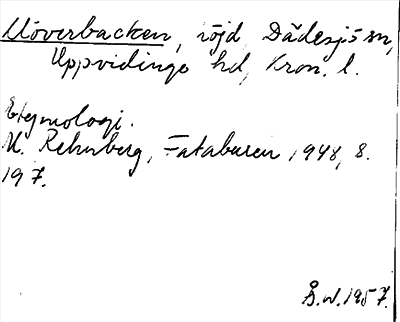 Möverbacken, röjd, Dädesjö sn,
Uppvidinge hd, Kron. l.
Etymologi.
M. Rehnberg, Fataburen 1948, s.
197.
Å.W. 1957.